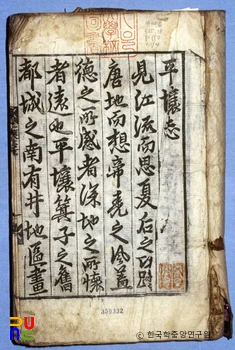 平壤志
見江流而思夏后之功蹈
唐地而想帝堯之風蓋
德之所感者深地之所懷
者遠也平壤箕子之舊
都城之南有井地區畫
© 한국학중앙연구원